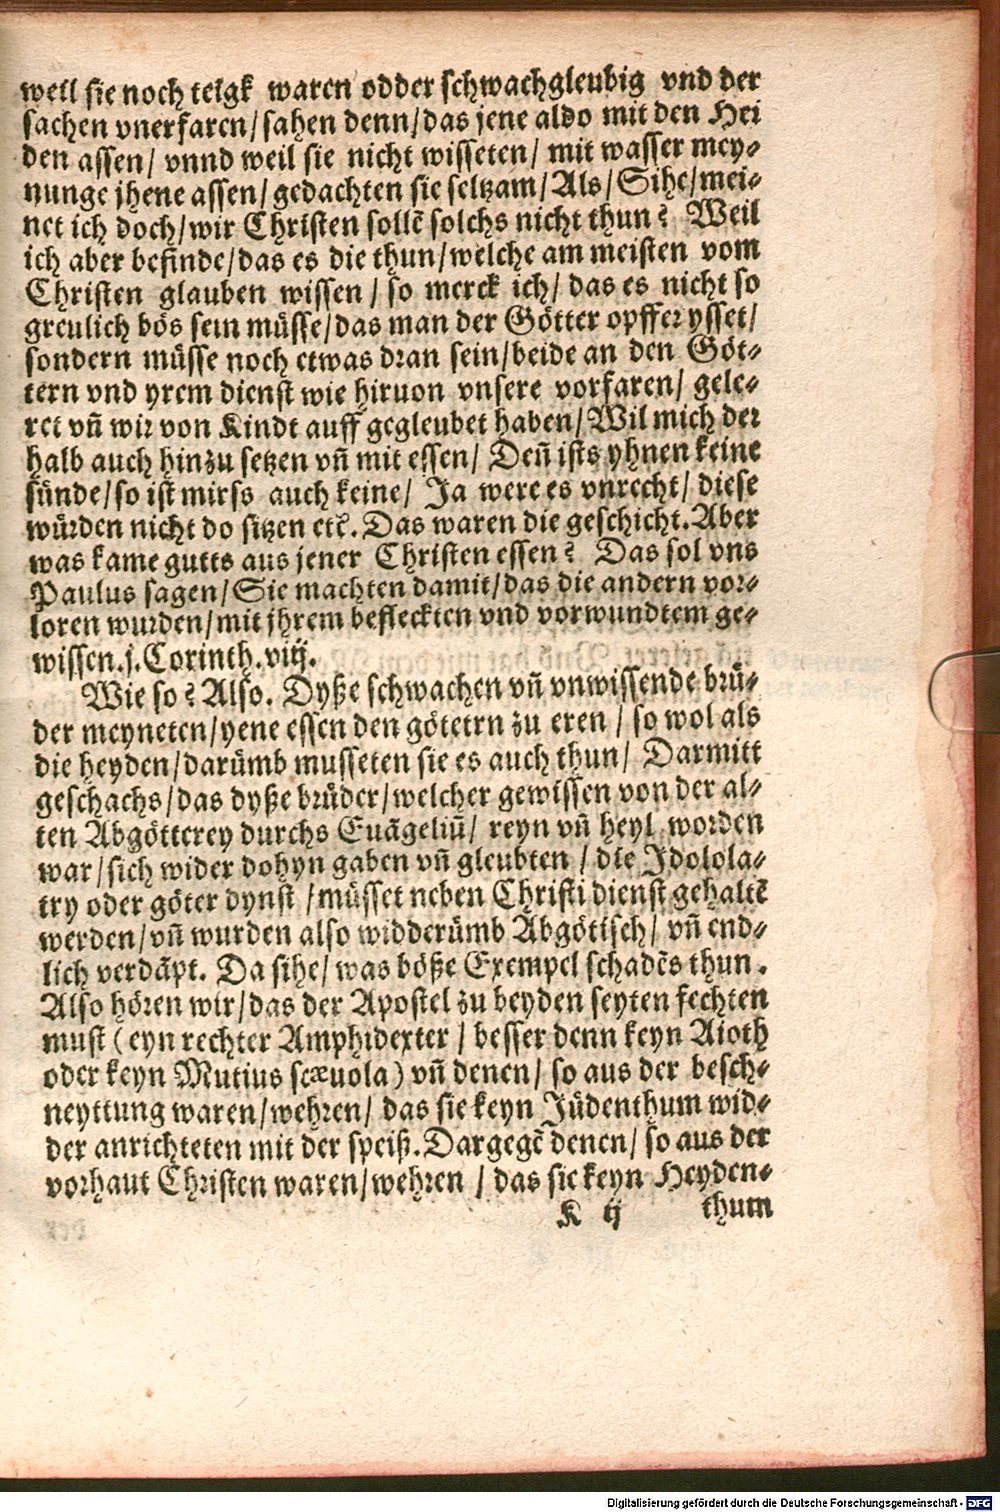 weil sie noch teigk waren odder schwachgleubig vnd der
sachen vnerfaren/sahen denn/das jene aldo mit den Hei
den assen/ vnnd weil sie nicht wisseten/ mit wasser mey⸗
nunge jhene assen/gedachten sie seltzam/Als/Sihe/mei⸗
net ich doch/wir Christen sollē solchs nicht thun? Weil
ich aber befinde/das es die thun/welche am meisten vom
Christen glauben wissen/ so merck ich/ das es nicht so
greulich bös sein müsse/das man der Götter opffer ysset/
sondern müsse noch etwas dran sein/beide an den Göt⸗
tern vnd yrem dienst wie hiruon vnsere vorfaren/ gele⸗
ret vñ wir von Kindt auff gegleubet haben/Wil mich der
halb auch hinzu setzen vñ mit essen/ Deñ ists yhnen keine
sünde/so ist mirs auch keine/ Ja were es vnrecht/ diese
würden nicht do sitzen etc̄. Das waren die geschicht. Aber
was kame gutts aus jener Christen essen? Das sol vns
Paulus sagen/Sie machten damit/das die andern vor⸗
loren wurden/mit jhrem befleckten vnd vorwundtem ge⸗
wissen.j.Corinth.viij.
Wie so? Also. Dyße schwachen vñ vnwissende brü⸗
der meyneten/yene essen den götetrn zu eren / so wol als
die heyden/darümb musseten sie es auch thun/ Darmitt
geschachs/das dyße brüder/welcher gewissen von der al⸗
ten Abgötterey durchs Euāgeliū/ reyn vñ heyl worden
war/sich wider dohyn gaben vñ gleubten / die Idolola⸗
try oder göter dynst /müsset neben Christi dienst gehaltē
werden/vñ wurden also widderümb Abgötisch/ vñ end⸗
lich verdāpt. Da sihe/ was böße Exempel schadēs thun.
Also hören wir/das der Apostel zu beyden seyten fechten
must (eyn rechter Amphidexter / besser denn keyn Aioth
oder keyn Mutius scæuola) vñ denen/ so aus der besch⸗
neyttung waren/wehren/ das sie keyn Jüdenthum wid⸗
der anrichteten mit der speiß. Dargegē denen/ so aus der
vorhaut Christen waren/wehren / das sie keyn Heyden⸗
K ij thum
Digitalisierung gefördert durch die Deutsche Forschungsgemeinschaft - DFG